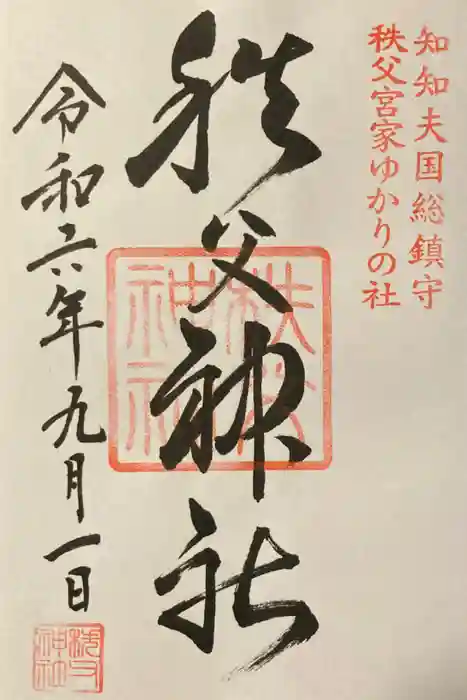 知知夫国総鎮守
秩父宮家ゆかりの社
秩父神社
令和六年九月一日
秩父神社
秩父神社